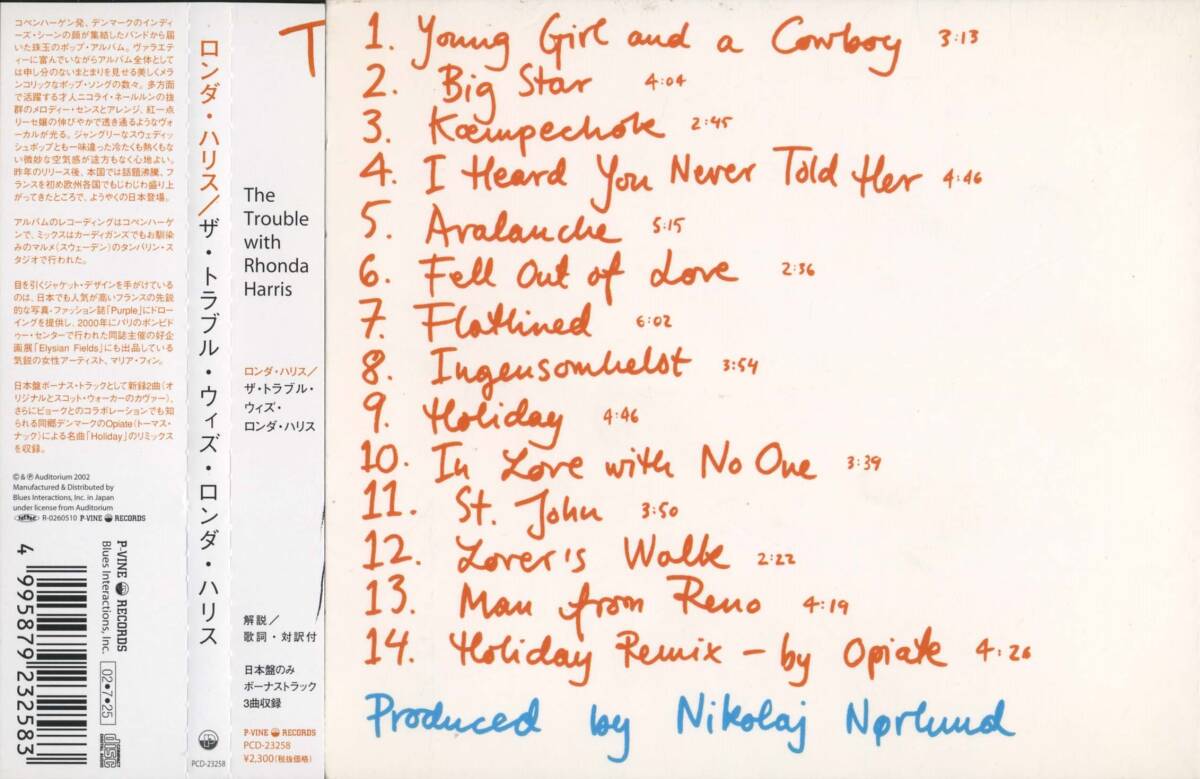 コペンハーゲン発、デンマークのインディ
ーズ・シーンの顔が集結したバンドから届
いた珠玉のポップ・アルバム。ヴァラエテ
ィーに富んでいながらアルバム全体として
は申し分のないまとまりを見せる美しくメラ
ンコリックなポップ・ソングの数々。多方面
で活躍する才人ニコライ・ネールルンの抜
群のメロディー・センスとアレンジ、紅一点
リーセ嬢の伸びやかで透き通るようなヴォ
ーカルが光る。ジャングリーなスウェディッ
シュポップとも一味違った冷たくも熱くもな
い微妙な空気感が途方もなく心地よい。
昨年のリリース後、本国では話題沸騰、フ
ランスを初め欧州各国でもじわじわ盛り上
がってきたところで、ようやくの日本登場。
アルバムのレコーディングはコペンハーゲ
ンで、ミックスはカーディガンズでもお馴染
みのマルメ(スウェーデン)のタンバリン・ス
タジオで行われた。
目を引くジャケット・デザインを手がけている
のは、日本でも人気が高いフランスの先鋭
的な写真・ファッション誌「Purple」にドロー
イングを提供し、2000年にパリのポンピド
ゥー・センターで行われた同誌主催の好企
画展「Elysian Fields」にも出品している
気鋭の女性アーティスト、マリア・フィン。
日本盤ボーナス・トラックとして新録2曲(オ
リジナルとスコット・ウォーカーのカヴァー)、
さらにビョークとのコラボレーションでも知
られる同郷デンマークのOpiate(トーマス・
ナック)による名曲「Holiday」のリミックス
を収録。
© & ℗ Auditorium 2002
Manufactured & Distributed by
Blues Interactions, Inc. in Japan
under license from Auditorium
R-0260510 P-VINE RECORDS
4 995879 232583
P-VINE RECORDS
Blues Interactions, Inc.
02•7•25
COMPACT
disc
DIGITAL AUDIO
ロンダ・ハリス/ザ・トラブル・ウィズ・ロンダ・ハリス
PCD-23258
T
The
Trouble
with
Rhonda
Harris
ロンダ・ハリス/
ザ・トラブル・
ウィズ・
ロンダ・ハリス
解説/
歌詞・対訳付
日本盤のみ
ボーナストラック
3曲収録
P-VINE RECORDS
PCD-23258
¥2,300(税抜価格)
1. Young Girl and a Cowboy 3:13
2. Big Star 4:04
3. Kæmpechok 2:45
4. I Heard You Never Told Her 4:46
5. Avalanche 5:15
6. Fell Out of Love 2:36
7. Flatlined 6:02
8. Ingensomhelst 3:54
9. Holiday 4:46
10. In Love with No One 3:39
11. St. John 3:50
12. Lover's Walk 2:22
13. Man from Reno 4:19
14. Holiday Remix - by Opiate 4:26
Produced by Nikolaj Nørlund